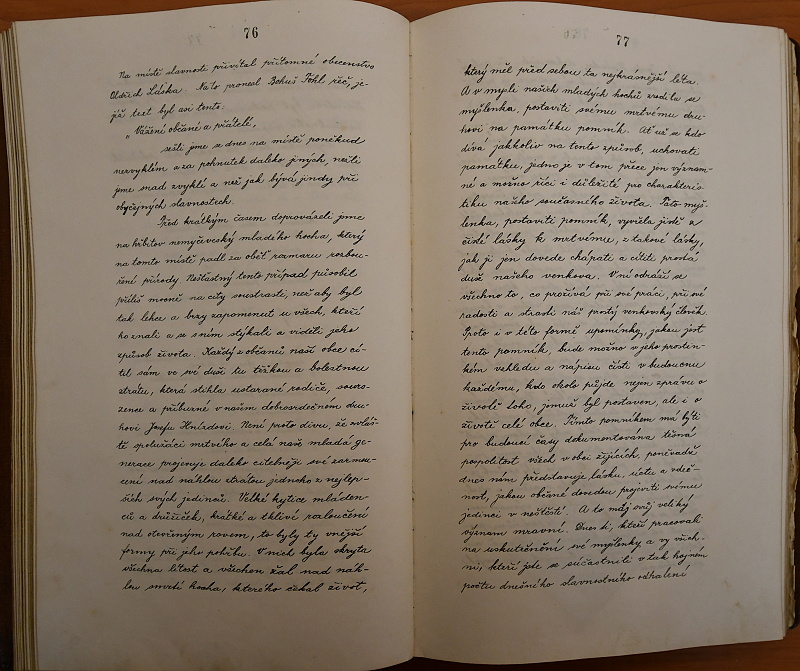 76
Na místě slavnosti přivítal přítomné obecenstvo
Oldřich Láska. Na to pronesl Bohuš Fohl řeč, je-
jíž text byl asi tento:
"Vážení občané a přátelé,
sešli jsme se dnes na místě poněkud
nezvyklém a za pohnutek daleko jiných, nežli
jsme snad zvyklí a než jak bývá jindy při
obyčejných slavnostech.
Před krátkým časem doprovázeli jsme
na hřbitov nemyčeveský mladého hocha, který
na tomto místě padl za oběť rozmaru rozbou-
ření přírody. Nešťastný tento případ působil
příliš mocně na city soustrasti, než aby byl
tak lehce a brzy zapomenut u všech, kteří
ho znali a se sním stýkali a viděli jeho
způsob života. Každý z občanů naší obce cí-
til sám ve své duši tu těžkou a bolestnou
ztrátu, která stihla ustarané rodiče, sours-
zence a příbuzné v našem dobrosrdečném dru-
hovi Josefu Hnízdovi. Není proto divu, že zvláš-
tě spolužáci mrtvého a celá naše mladá ge-
nerace projevuje daleko citelněji své zarmou-
cení nad náhlou ztrátou jednoho z nejlep-
ších svých jedinců. Velké kytice mláden-
ců a družiček, krátké a tklivé rozloučení
nad otevřeným rovem, to byly ty vnější
formy při jeho pohřbu. V nich byla skryta
všechna lítost a všechen žal nad náh-
lou smrtí hocha, kterého čekal život,
77
který měl před sebou ta nejkrásnější léta.
A v mysli našich mladých hochů zrodila se
myšlenka, postaviti svému mrtvému dru-
hovi na památku pomník. Ať už se kdo
dívá jakkoliv na tento způsob, uchovati
památku, jedno je v tom přece jen význam-
né a možno říci i důležité pro charakteris-
tiku našho současného života. Tato myš-
lenka, postaviti pomník, vyvěrá jistě z
čisté lásky k mrtvému, z takové lásky,
jak ji jen dovede chápati a cítiti prostá
duš našeho venkova. V ní odráží se
všechno to, co prožívá při své práci, při své
radosti a strasti náš prostý venkovský člověk.
Proto i v této formě upomínky, jakou jest
tento pomník, bude možno v jeho prostin-
kém vzhledu a nápisu čísti v budoucnu
každému, kdo okolo půjde nejen zprávu o
životě toho, jemuž byl postaven, ale i o
životě celé obce. Tímto pomníkem má býti
pro budoucí časy dokumentována těsná
pospolitost všech v obci žijících, poněvadž
dnes nám představuje lásku, úctu a vděč-
nost, jakou občané dovedou projeviti svému
jedinci v neštěstí. A to má svůj veliký
význam mravní. Dnes ti, kteří pracovali
na uskutečnění své myšlenky a vy všich-
ni, kteří jste se súčastnili v tak hojném
počtu dnešního slavnostního odhalení